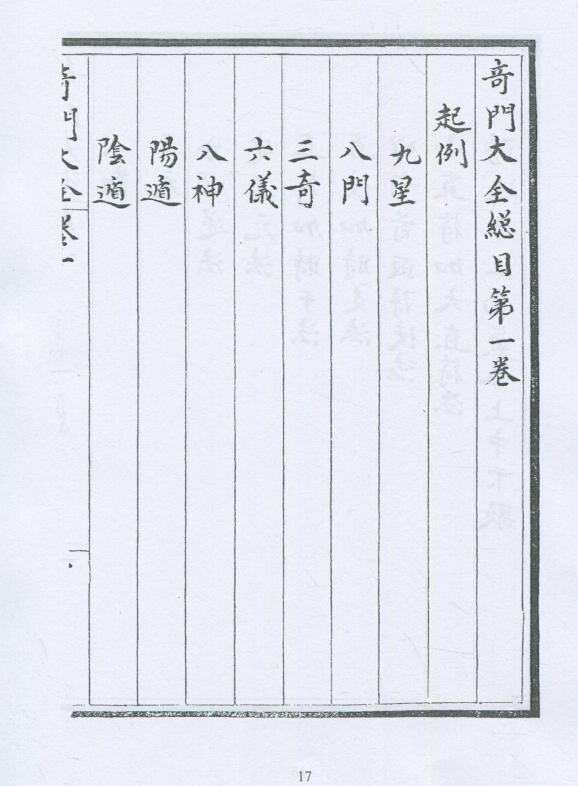 奇門大全総目第一卷
起例
九星
八門
三奇
六儀
八神
陽遁
陰遁
奇門大全卷一
17